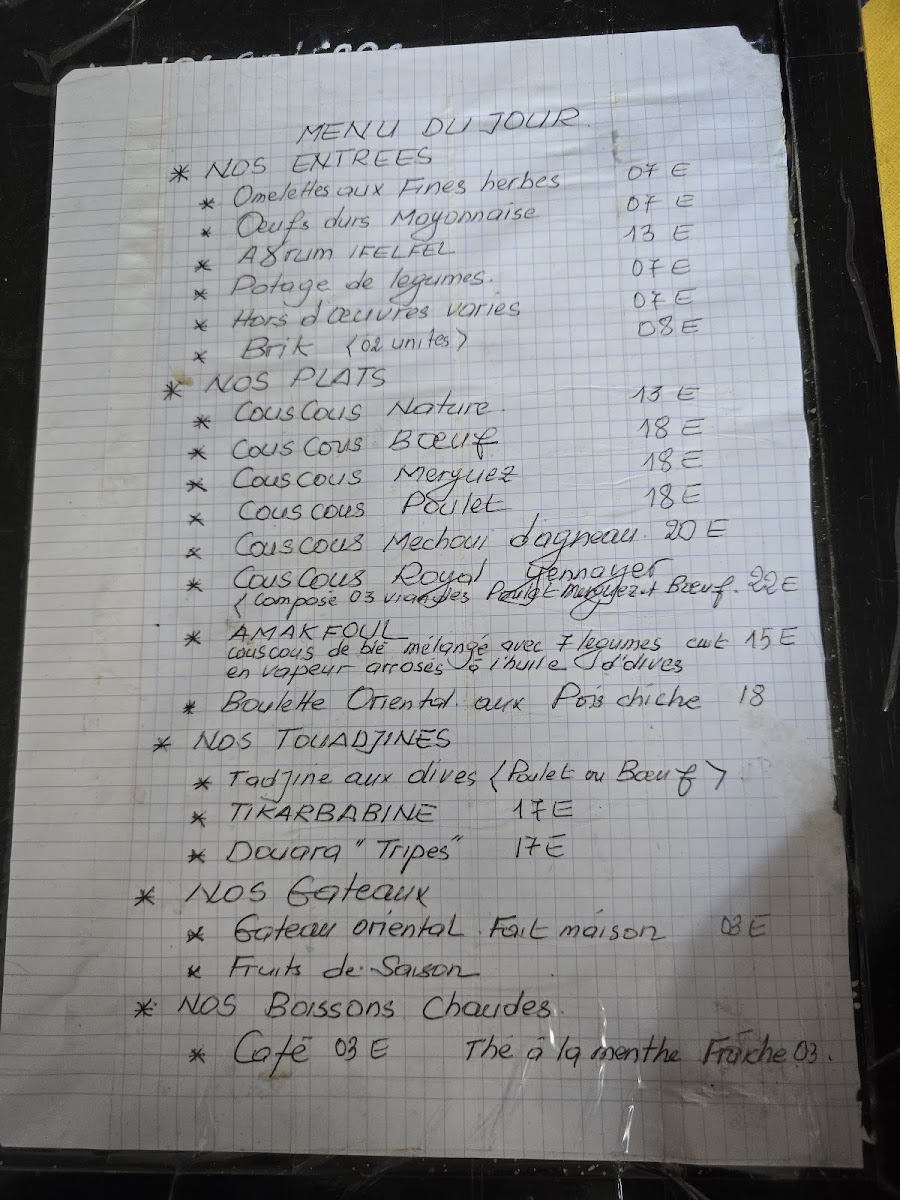 MENU DU JOUR.
* NOS ENTREES
* Omelettes aux Fines herbes 07 E
* Œufs durs Mayonnaise 07 E
* Aɣrum IFELFEL 13 E
* Potage de legumes. 07 E
* Hors d'œuvres varies 07 E
* Brik (02 unites) 08 E
* NOS PLATS
* Couscous Nature. 13 E
* Couscous Bœuf 18 E
* Couscous Merguez 18 E
* Couscous Poulet 18 E
* Couscous Mechoui d'agneau. 20 E
* Couscous Royal Yennayer
(Compose 03 viandes Poulet Merguez + Bœuf. 22 E
* AMAKFOUL
couscous de blé mélangé avec 7 legumes cuit 15 E
en vapeur arrosés à l'huile d'olives
* Boulette Oriental aux Pois chiche 18
* NOS TOUADJINES
* Tadjine aux olives (Poulet ou Bœuf).
* TIKARBABINE 17 E
* Douara "Tripes" 17 E
* NOS Gateaux
* Gateau oriental Fait maison 03 E
* Fruits de Saison
* NOS Boissons Chaudes.
* Café 03 E The à la menthe Fraiche 03.